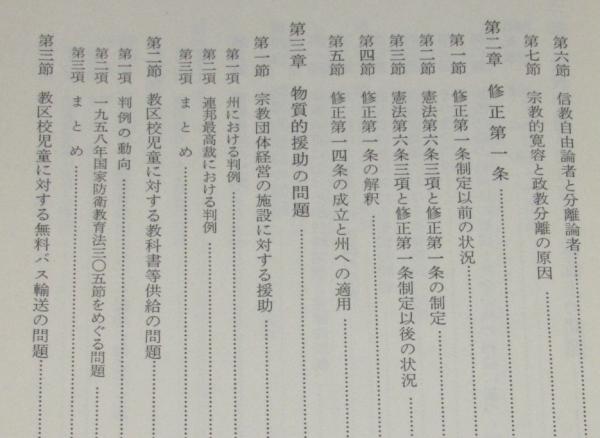 第六節 信教自由論者と分離論者
第七節 宗教的寛容と政教分離の原因
第二章 修正第一条
第一節 修正第一条制定以前の状況
第二節 憲法第六条三項と修正第一条の制定
第三節 憲法第六条三項と修正第一条制定以後の状況
第四節 修正第一条の解釈
第五節 修正第一四条の成立と州への適用
第三章 物質的援助の問題
第一節 宗教団体経営の施設に対する援助
第一項 州における判例
第二項 連邦最高裁における判例
第三項 まとめ
第二節 教区校児童に対する教科書等供給の問題
第一項 判例の動向
第二項 一九五八年国家防衛教育法三〇五節をめぐる問題
第三項 まとめ
第三節 教区校児童に対する無料バス輸送の問題